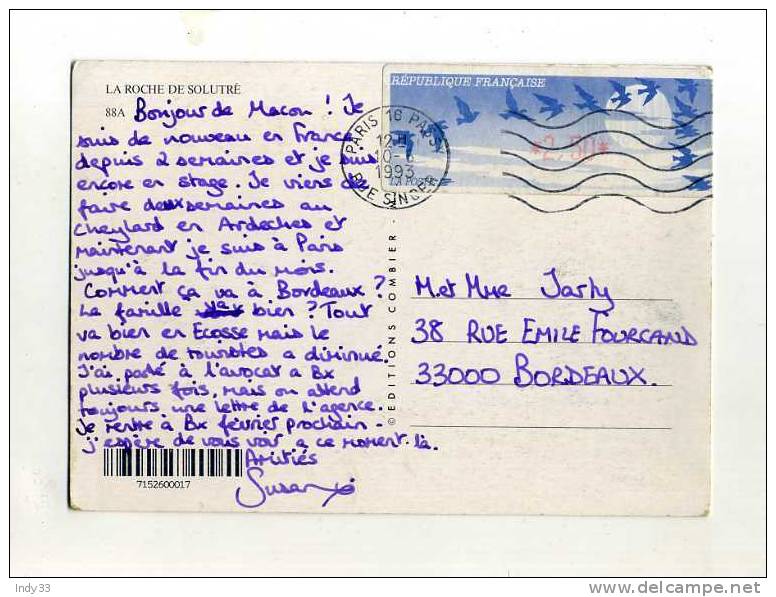 LA ROCHE DE SOLUTRÉ
88A
Bonjour de Macon ! Je
suis de nouveau en France
depuis 2 semaines et je suis
encore en stage. Je viens de
faire deux semaines au
Cheylard en Ardeches et
maintenant je suis à Paris
jusqu'à la fin du mois.
Comment ça va à Bordeaux ?
La famille va bien ? Tout
va bien en Ecosse mais le
nombre de touristes a diminué.
J'ai parlé à l'avocat a Bx
plusieurs fois, mais on attend
toujours une lettre de l'agence.
Je rentre à Bx février prochain -
j'espère de vous voir a ce moment là.
Amitiés
Susan
7152600017
© EDITIONS COMBIER -
RÉPUBLIQUE FRANÇAISE
*2,50*
LA POSTE
PARIS 16 PARIS
12H
10-
1993
RUE SINGER
M. et Mme
38 RUE EMILE FOURCAND
33000 BORDEAUX.
Indy33
delcampe.net